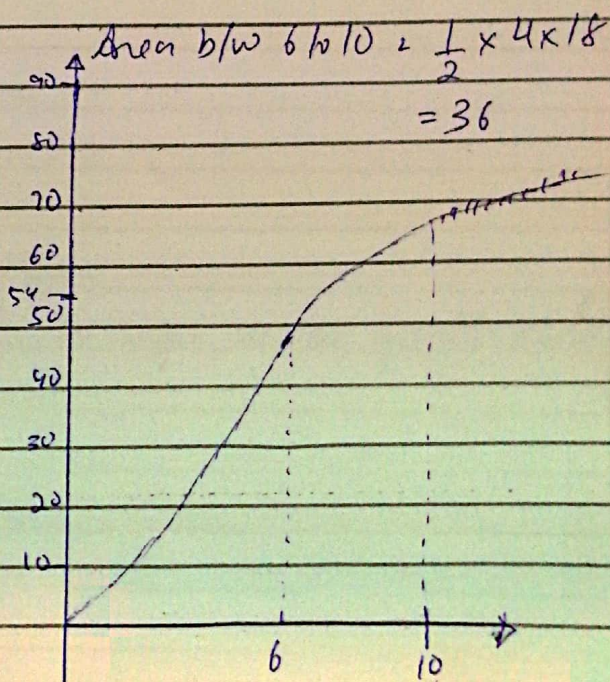 Area b/w 6 to 10 = 1/2 × 4 × 18
= 36
90
80
70
60
54
50
40
30
20
10
6
10